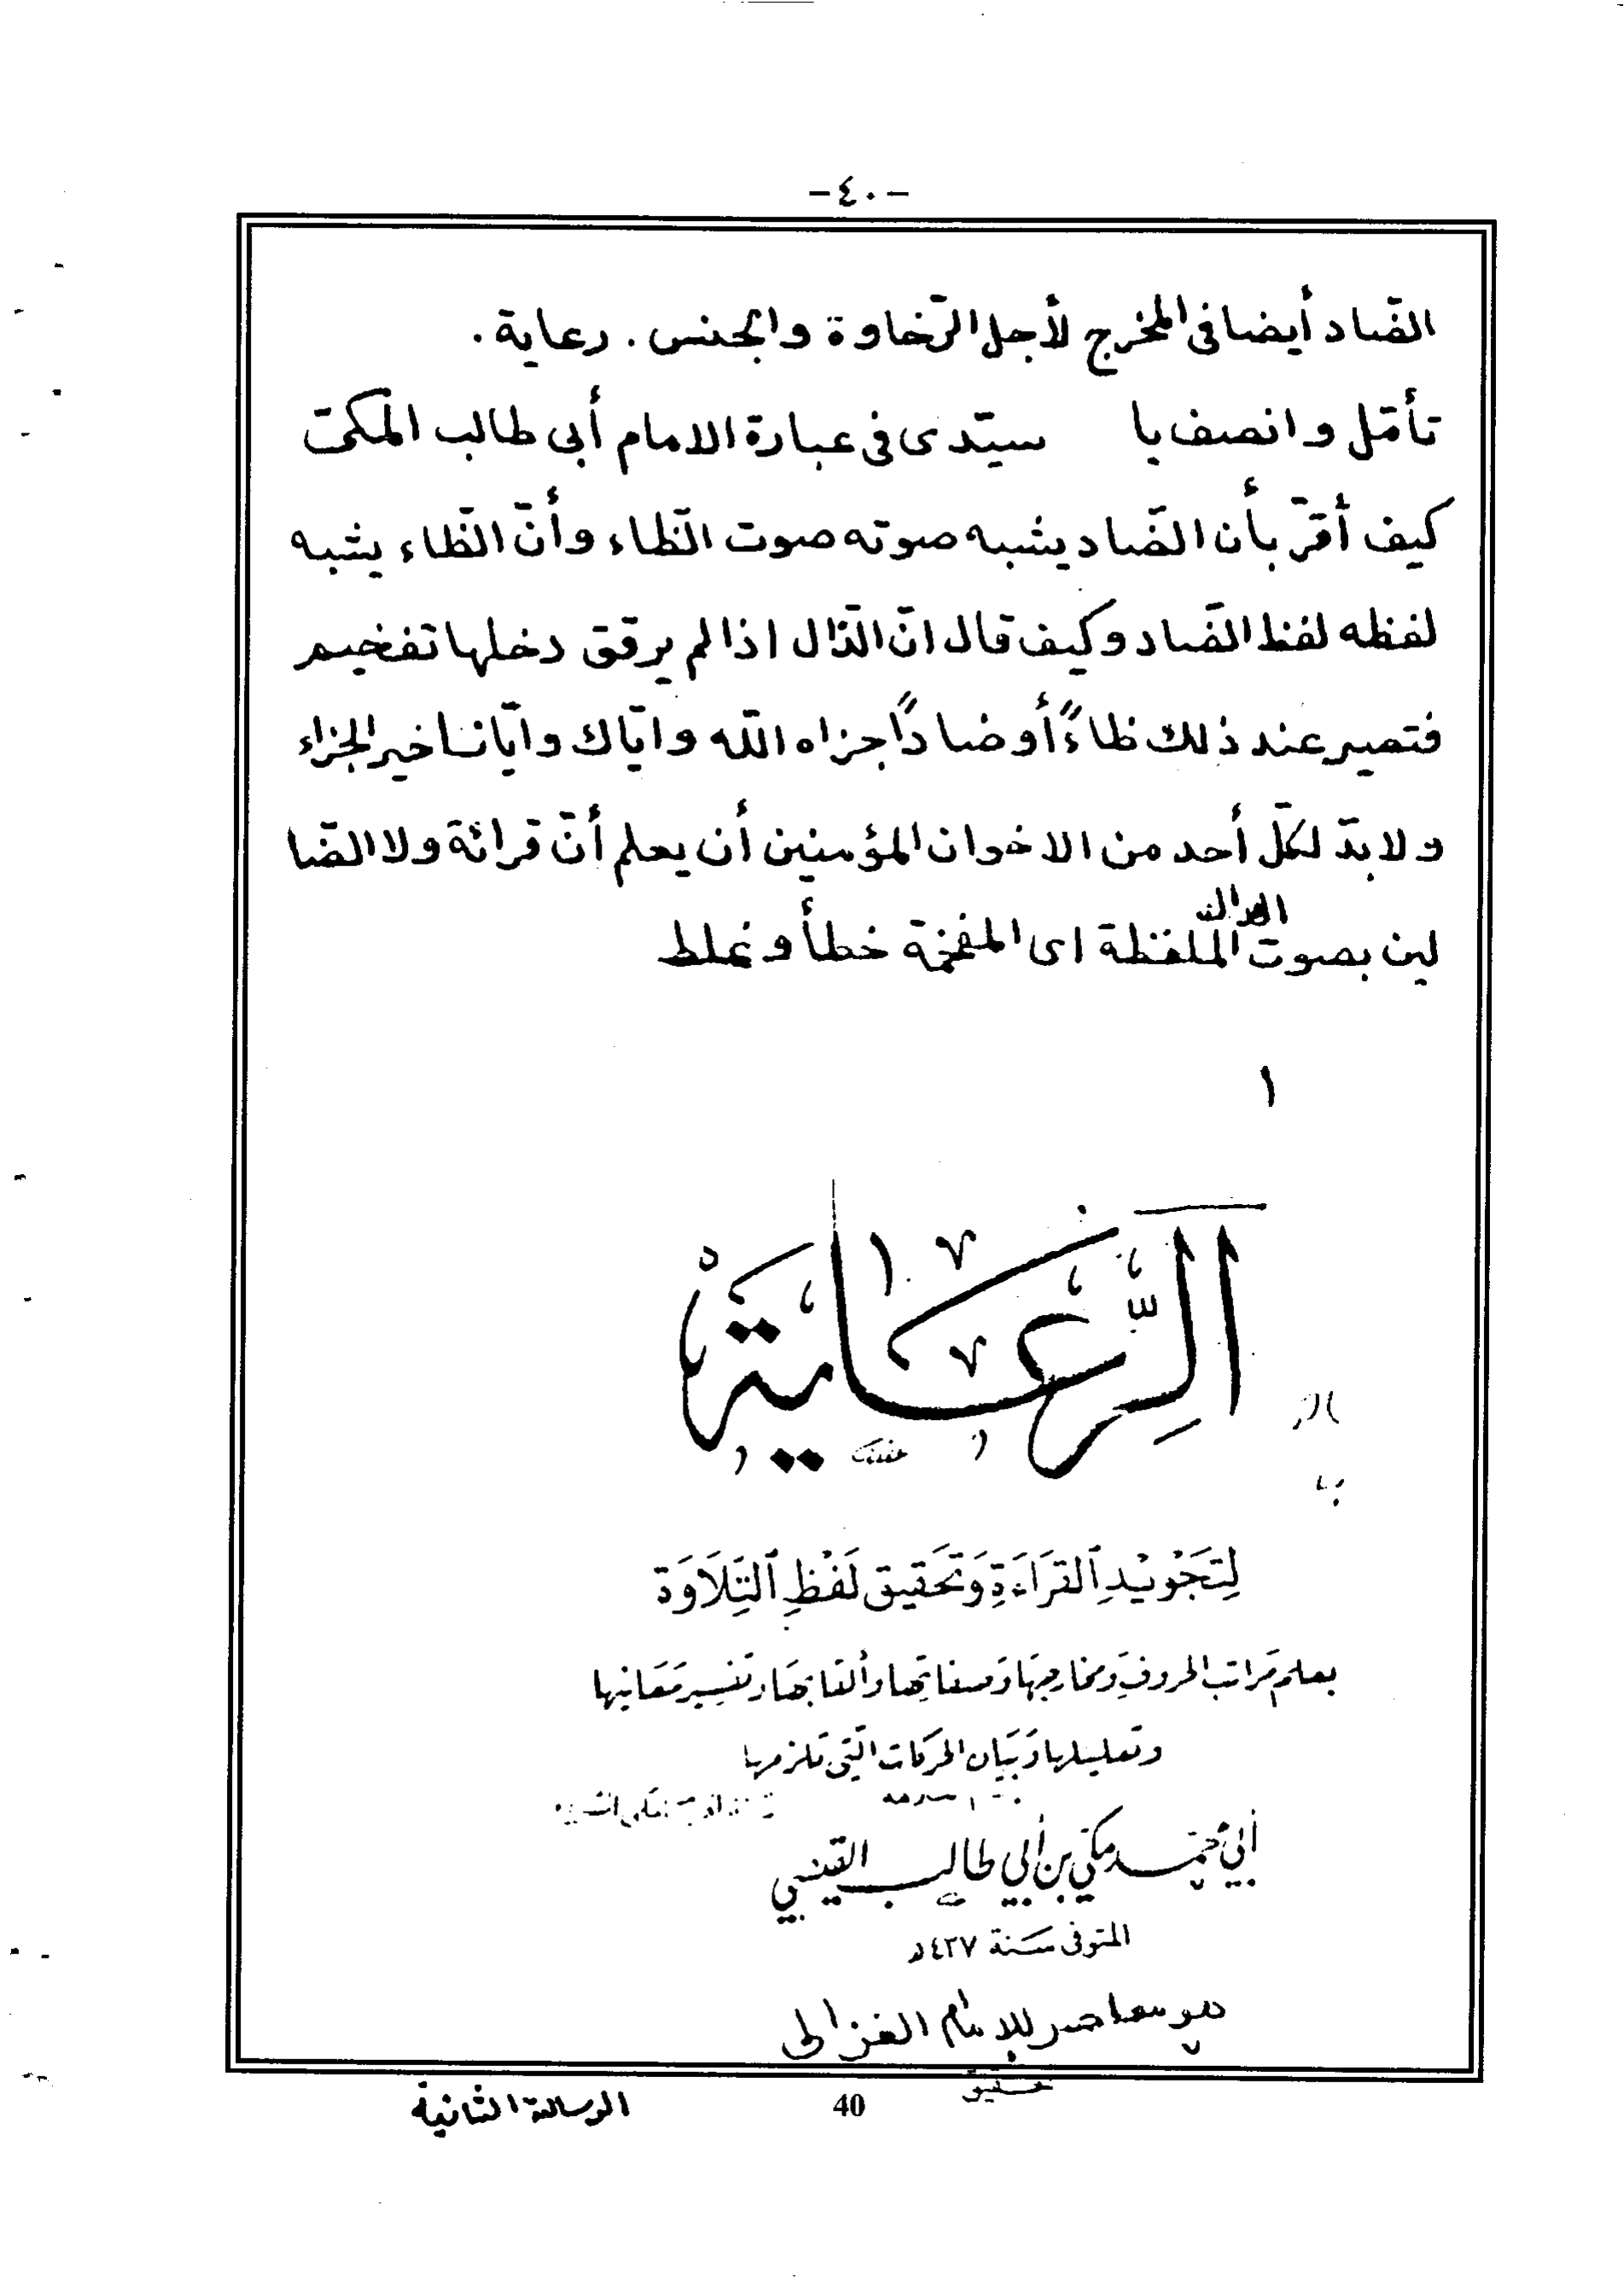 -٤٠-
الضاد أيضا فى المخرج لأجل الرّخاوة والجنس . رعاية .
تأمّل وانصف يا سيّدى فى عبارة الامام أبى طالب المكىّ
كيف أقرّ بأن الضّاد يشبه صوته صوت الظّاء وأنّ الظّاء يشبه
لفظه لفظ الضّاد وكيف قال انّ الذّال اذا لم يرقق دخلها تفخيم
فتصير عند ذلك ظاءً أو ضادًا جزاه اللّه وايّاك وايّانا خير الجزاء
ولابدّ لكلّ أحد من الاخوان المؤمنين أن يعلم أنّ قرائة ولا الضّا
الدال
لين بصوت الملفظة اى المفخمة خطأ وغلط
١
الرِّعَايَةُ
لِتَجْوِيْدِ القرَاءَةِ وَتَحَقيق لَفْظِ التِّلَاوَة
بعلم مَراتب الحروفِ ومخارجهَا وَصفاتها وألقابهَا وتفسير مَعَانيها
وتعليلها وَبيَان الحركات الَّتي تلزمها
أبي محمّد مكّي بن أبي طالب القيسي
المتوفى سَنة ٤٣٧ه
هو معاصر للامام الغزالى
تحقيق
40
الرسالة الثانية